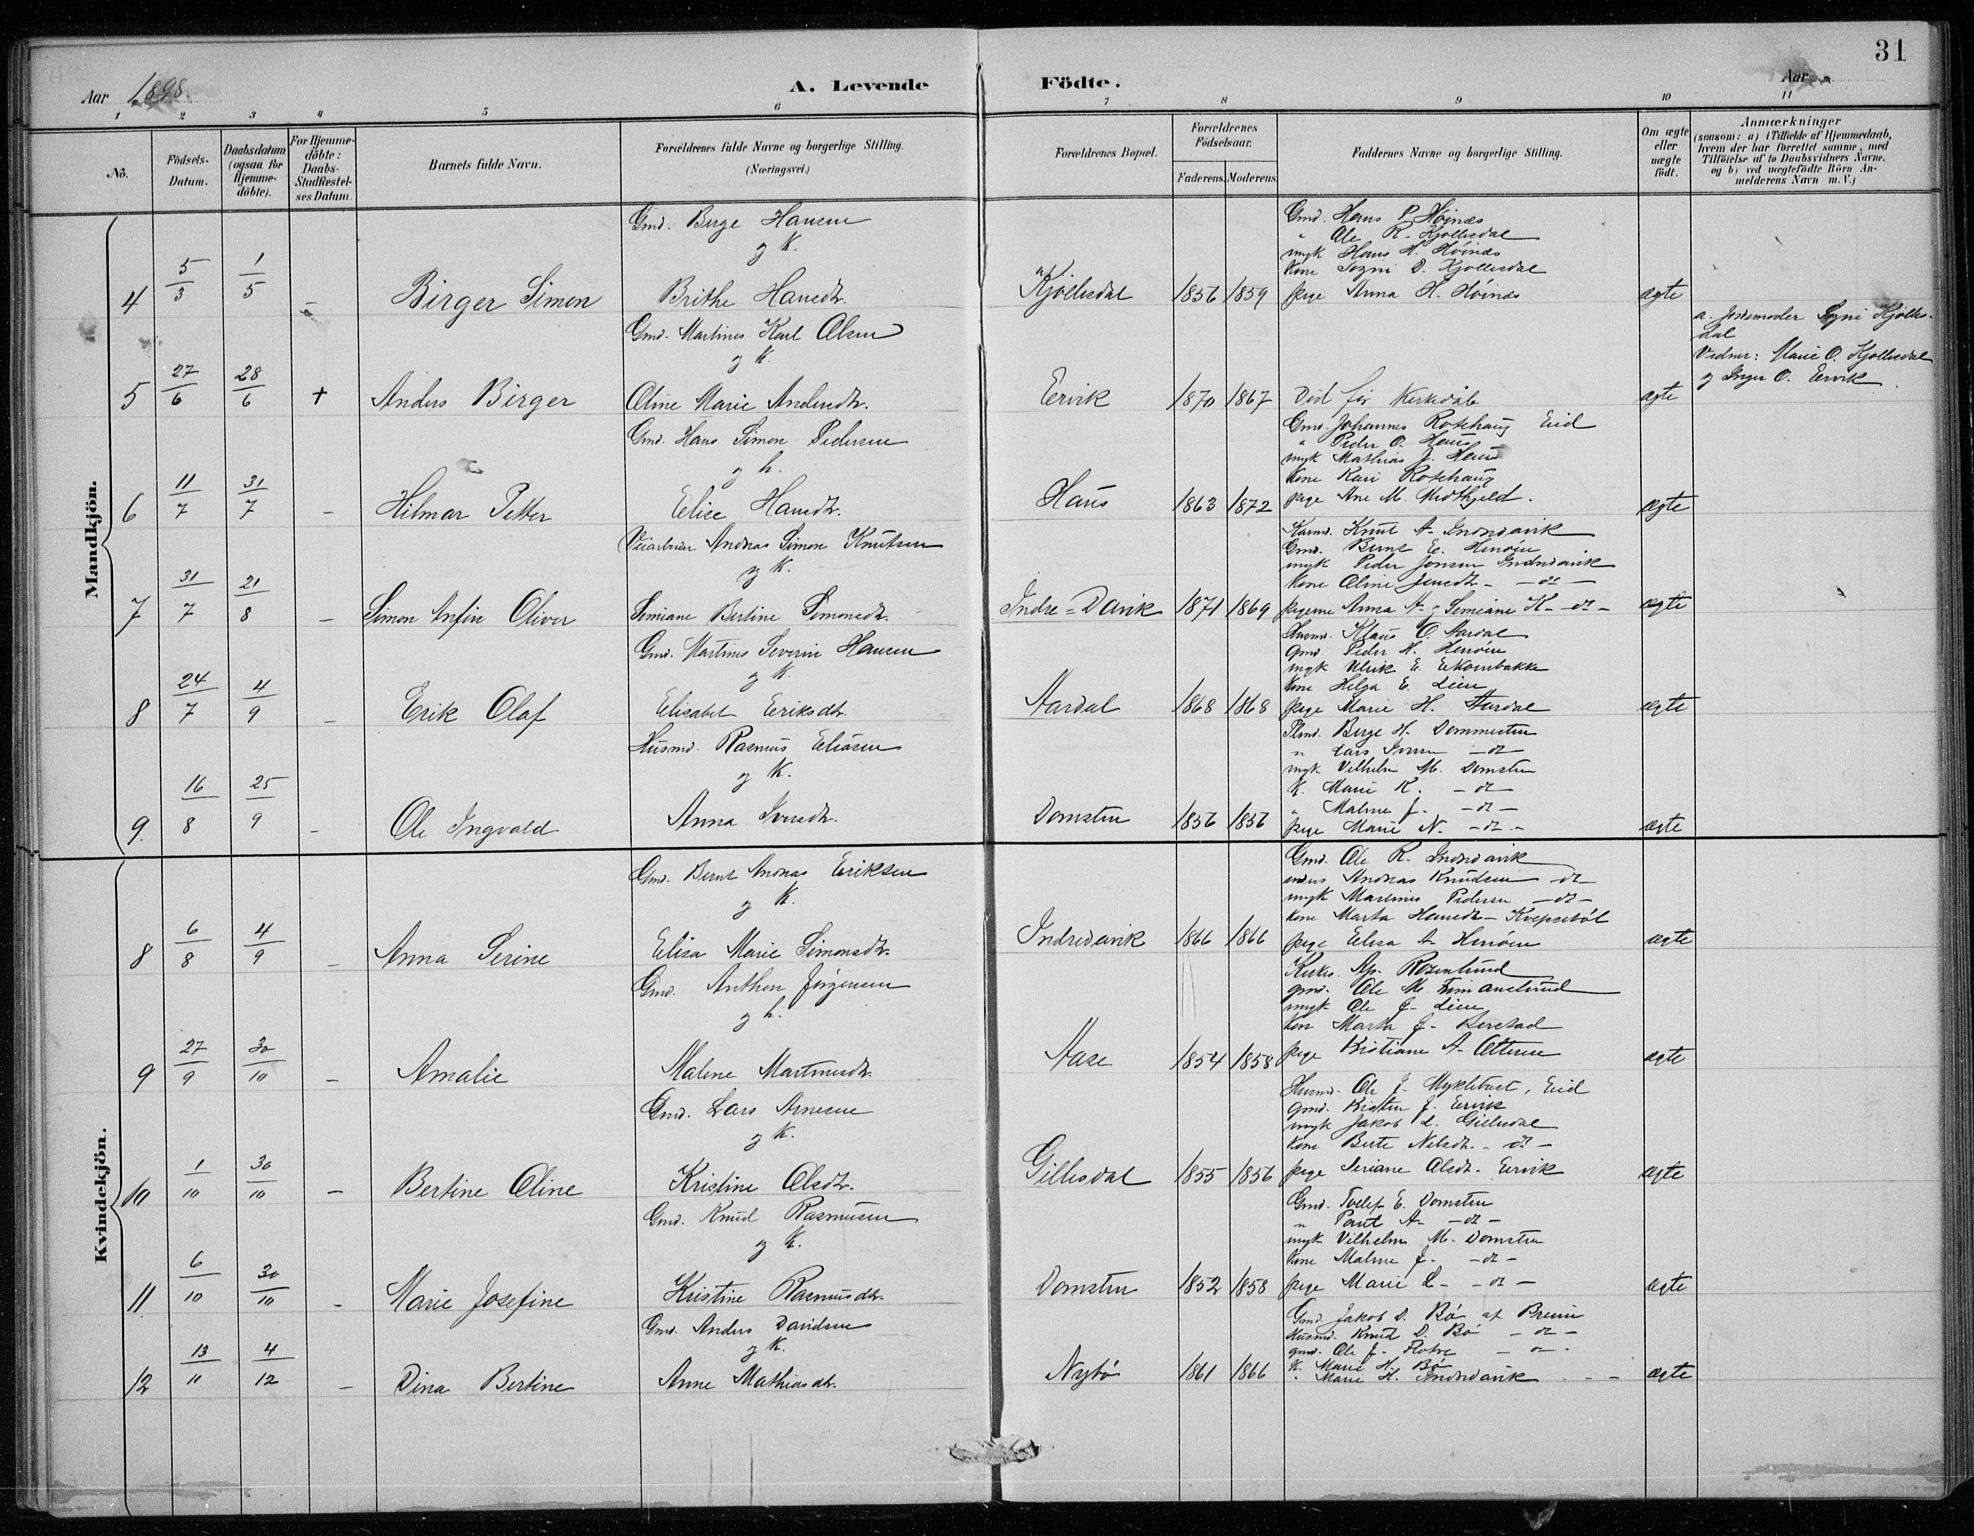 31
Aar 1898.
A. Levende Födte.
Aar
1 2 3 4 5 6 7 8 9 10 11
Nö.
Födsels-Datum.
Daabsdatum (ogsaa for Hjemmedöbte).
For Hjemmedöbte: Daabs-Stadfæstelses Datum.
Barnets fulde Navn.
Forældrenes fulde Navne og borgerlige Stilling. (Næringsvei.)
Forældrenes Bopæl.
Forældrenes Födselsaar.
Faderens. Moderens.
Faddernes Navne og borgerlige Stilling.
Om ægte eller uægte födt.
Anmærkninger
(saasom: a) i Tilfælde af Hjemmedaab,
hvem der har forrettet samme, med
Tilföielse af to Daabsvidners Navne,
og b) ved uægtefödte Börn Anmelderens Navn m. V.)
Mandkjön.
4 5/3 1/5 – Birger Simon
Gmd. Berge Hansen
og K.
Brithe Hansdtr.
Kjøllesdal 1856 1859
Gmd. Hans P. Høinæs
" Ole R. Kjøllesdal
ungk Hans H. Høinæs
Kone Sygni D. Kjøllesdal
pige Anna H. Høinæs
ægte
5 27/6 28/6 + Anders Birger
Gmd. Martinus Karl Olsen
og K.
Oline Marie Andersdtr.
Ervik 1870 1867
Død før Kirkedåb
ægte
a. Jordemoder Sygni Kjøllesdal
Vidner: Marie O. Kjøllesdal
og Inger O. Ervik.
6 11/7 31/7 – Hilmar Petter
Gmd. Hans Simon Pedersen
og h.
Elise Hansdtr.
Haus 1863 1872
Gmd. Johannes Rotehaug Eid
" Peder O. Haus
ungk Mathias J. Haus
Kone Kari Rotehaug
pige Ane M. Midthjeld.
ægte
7 31/7 21/8 – Simon Anfin Oliver
Veiarbeider Andreas Simon Knutsen
og K.
Simiane Bertine Simonsdtr.
Indre-Davik 1871 1869
Kaarmd. Knut A. Indredavik
Gmd. Bernt E. Henøen
ungk Peder Jonsen Indredavik
Kone Oline Jensdtr. – do –
pigerne Anna A. og Simiane K. – do –
ægte
8 24/7 4/9 – Erik Olaf
Gmd. Martines Severin Hansen
og K.
Elisabet Eriksdtr.
Aardal 1868 1868
Husmd. Klaus O. Aardal
Gmd. Peder H. Henøen
ungk Ulrik E. Ekornbakke
Kone Helga E. Lien
pige Marie H. Aardal
ægte
9. 16/8 25/9 – Ole Ingvald
Husmd. Rasmus Eliasen
og K.
Anna Iversdtr.
Domsten 1856 1856
Plmd. Berge H. Dommesten
" Lars Iversen – do –
ungk Vilhelm M. Domsten
K. Marie K. – do –
" Malene J. – do –
pige Marie N. – do –
ægte
Kvindekjön.
8 6/8 4/9 – Anna Serine
Gmd. Bernt Andreas Eriksen
og K.
Elisa Marie Simonsdtr.
Indredavik 1866 1866
Gmd. Ole R. Indredavik
Andreas Knudsen – do –
ungk Martinus Pedersen – do –
Kone Marta Hansdtr. Kvepsebøl
pige Elisa A. Henøen
ægte
9 27/9 30/10 – Amalie
Gmd. Anthon Jørgensen
og h.
Malene Martinusdtr.
Aase 1854 1858
Kirkes. Ap. Rosenlund
gmd. Ole M.
ungk Ole J. Lien
Kone Marta J. Berstad
pige Kristiane A. Otteren
ægte
10 1/10 30/10 – Bertine Oline
Gmd. Lars Arnesen
og K.
Kristine Olsdtr.
Gillesdal 1855 1856
Husmd. Ole J. Myklebust, Eid
gmd. Kristen J. Ervik
ungk Jakob L. Gillesdal
Kone Berte Nelsdtr. – do –
pige Seriane Olsdtr. Ervik
ægte
11 6/10 30/10 – Marie Josefine
Gmd. Knud Rasmusen
og K.
Kristine Rasmusdtr.
Domsten 1852 1858
Gmd. Tollef E. Domsten
" Paul A. – do –
ungk Vilhelm M. Domsten
Kone Malene J. – do –
pige Marie L. – do –
ægte
12 13/11 4/12 – Dina Bertine
Gmd. Anders Davidsen
og K.
Anne Mathiasdtr.
Nybø 1861 1866
Gmd Jakob D. Bø af Breim
Husmd. Knud D. Bø – do –
gmd. Ole J. Flotre – do –
K. Marie H. Bø
" Marie H. Indredavik
ægte